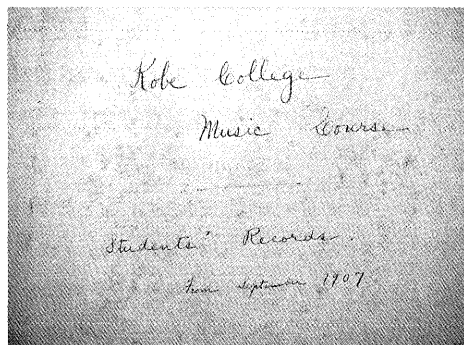 Kobe College
Music Course
Students' Records.
From September 1907